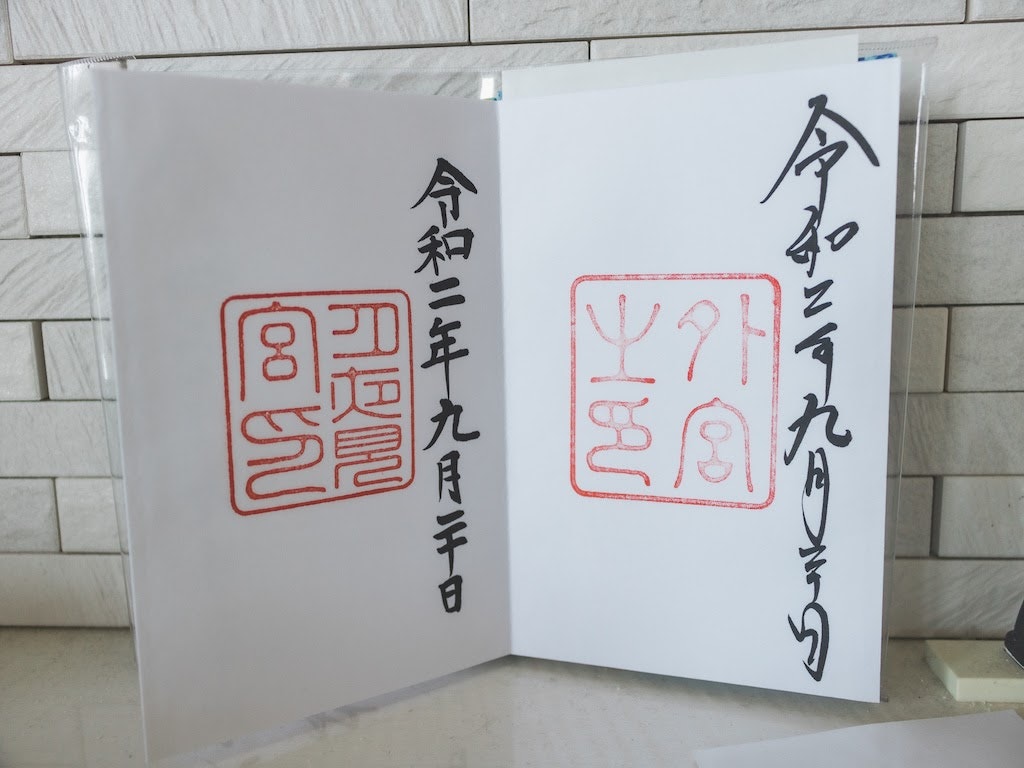 令和二年九月二十日
外宮
之印
令和二年九月二十日
月夜見
宮印